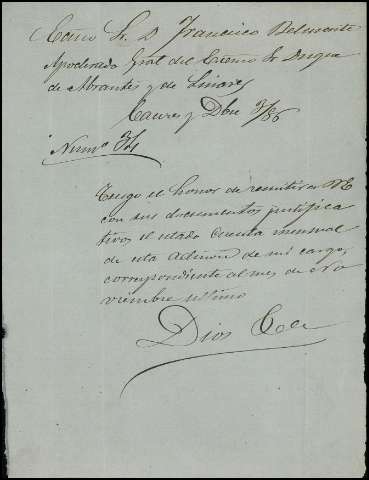 Excmo Sr. D Francisco Belmonte
Apoderado Gral del Excmo Sr Duque
de Abrantes y de Linares
Dbre 3/86
Numo 34
Tengo el honor de remitir a VE
con sus documentos justifica
tivos el estado cuenta mensual
de esta Admon de mi cargo,
correspondiente al mes de No
viembre ultimo
Dios &a